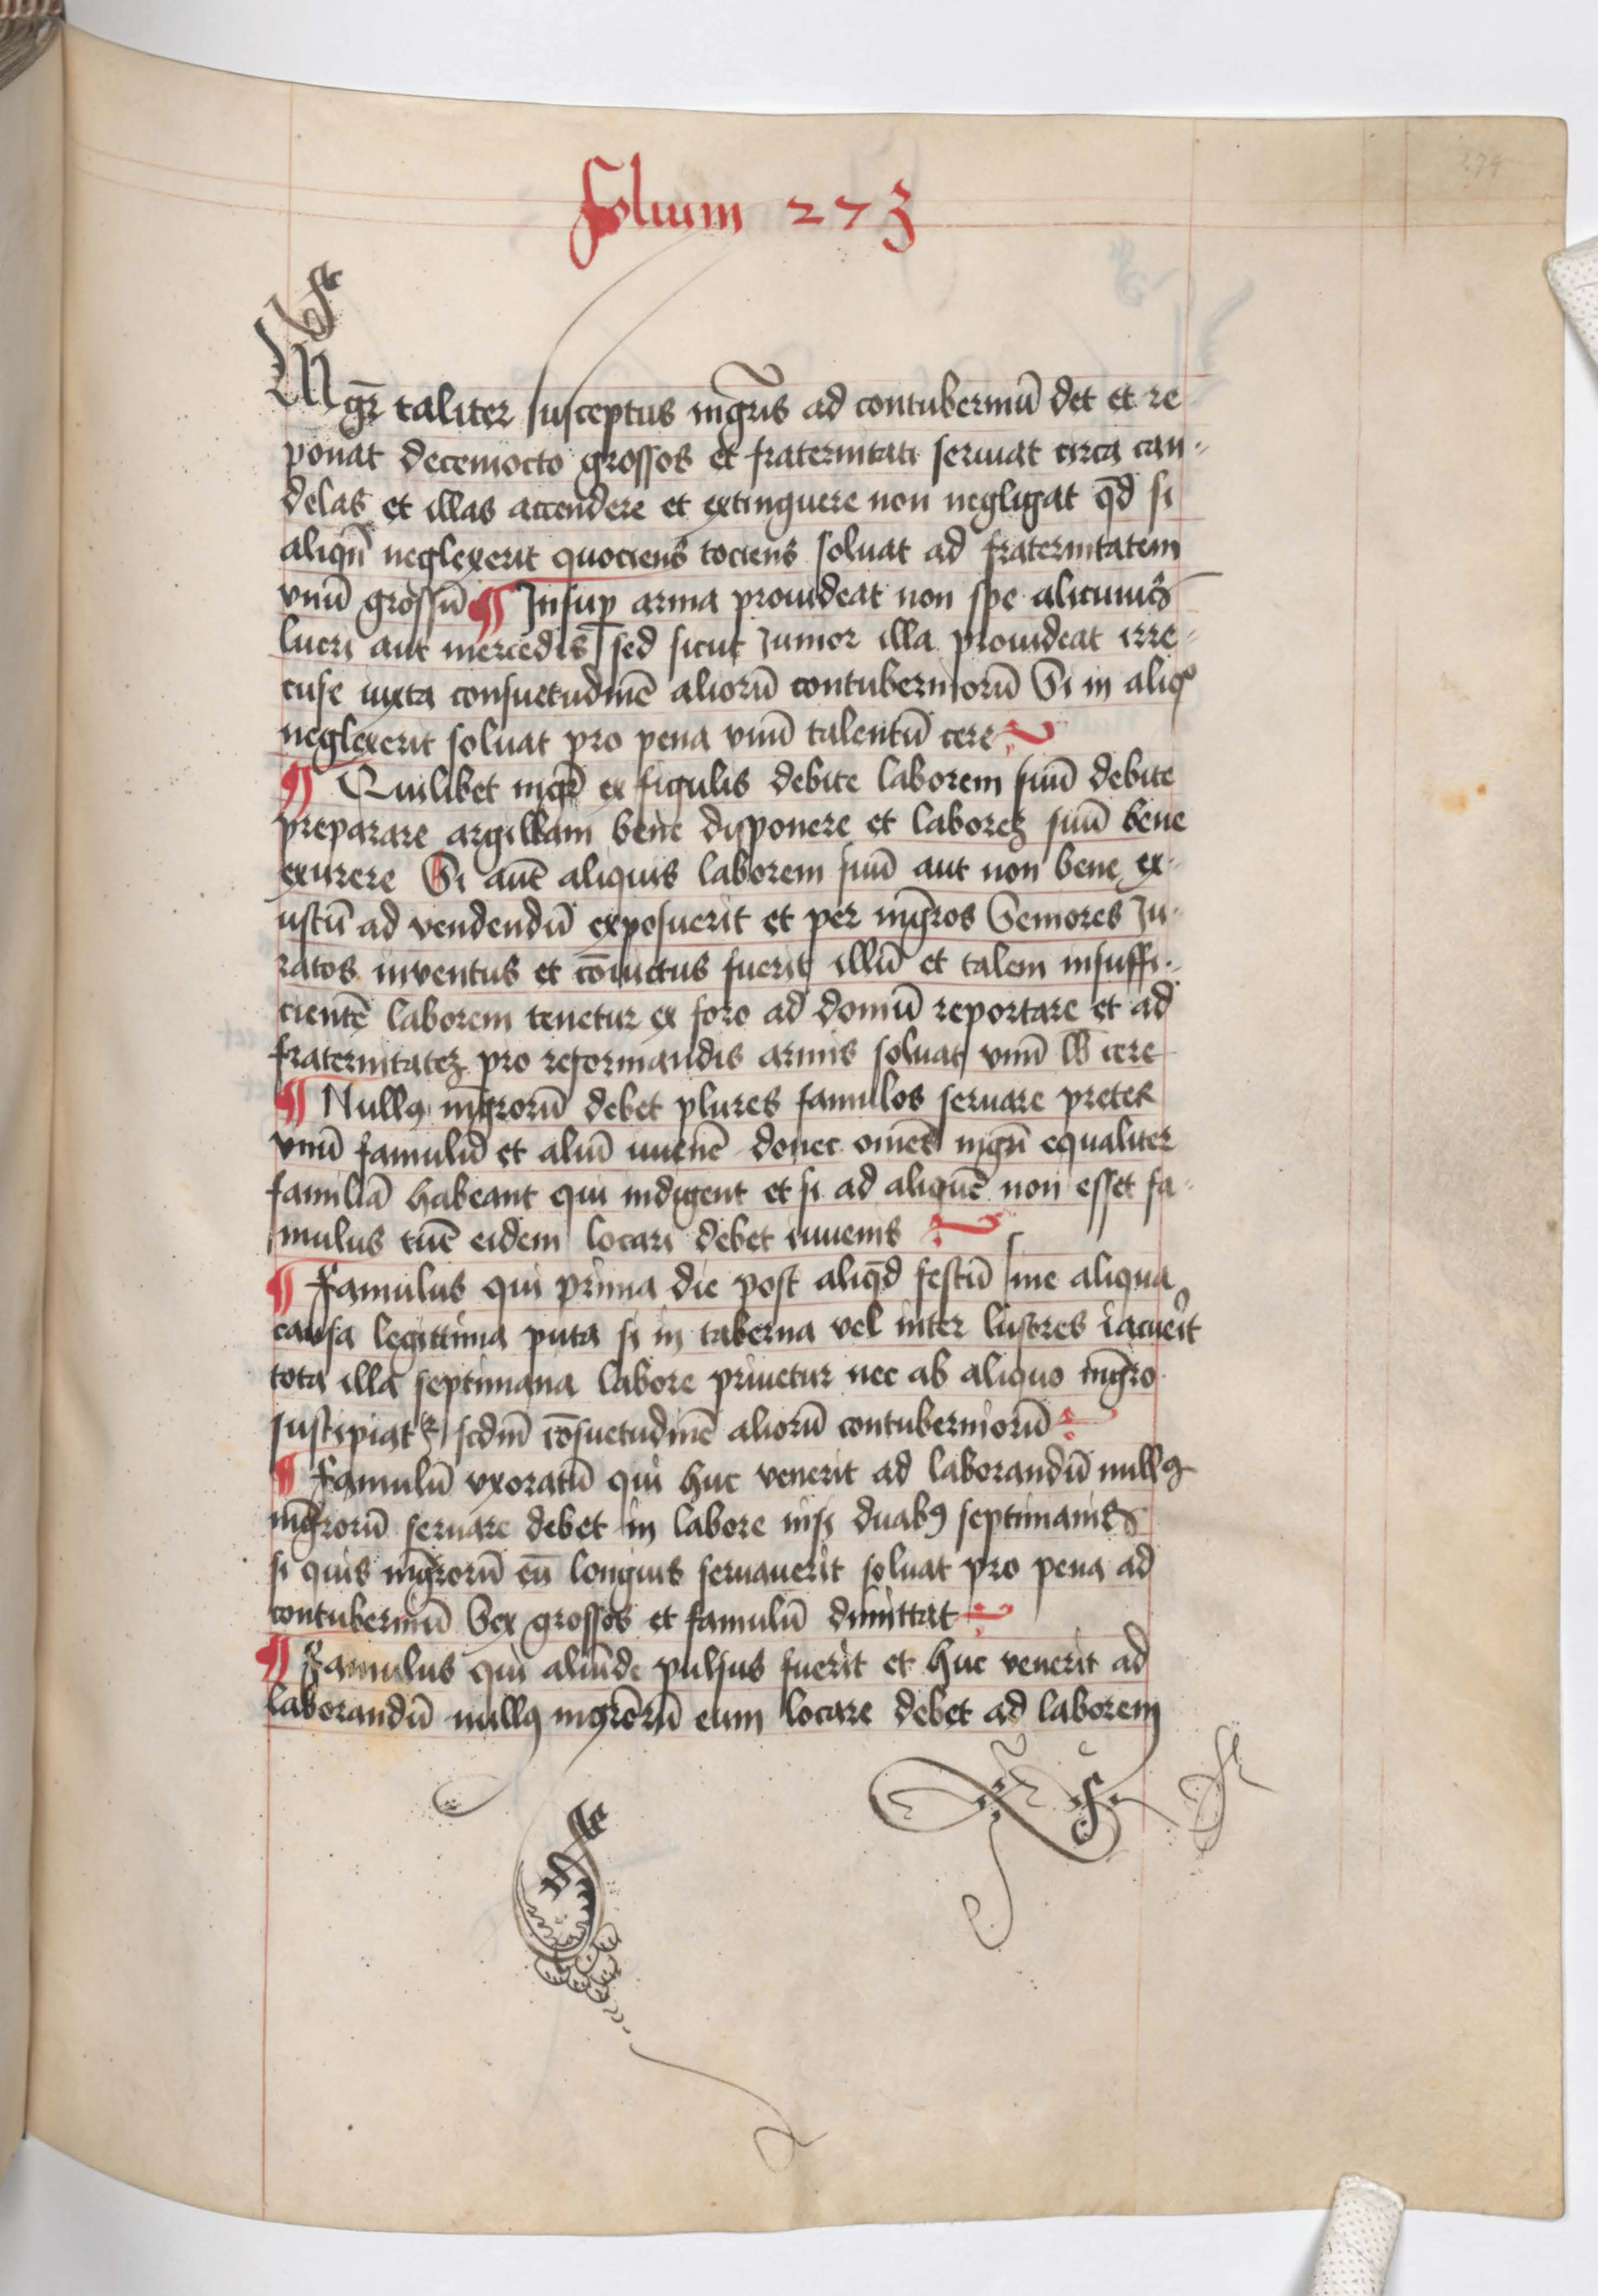 folium 273
279
Mgr̄ taliter susceptus mgr̄is ad contuberniū det et re
ponat decemocto grossos et fraternitati seruiat circa can-
delas et illas accendere et extinguere non negligat qd̄ si
aliqn̄ neglexerit quociens tociens soluat ad fraternitatem
vnū grossū ¶ Insuꝑ arma prouideat non spe alicuius
lucri aut mercedis sed sicut Junior illa prouideat irre-
cuse iuxta consuetudinē aliorū contuberniorū Si in aliqº
neglexerit soluat pro pena vnū talentū cere
¶ Quilibet mgr̄ ex figulis debite laborem suū debite
preparare argillam bene disponere et laboreꝫ suū bene
exurere Si autē aliquis laborem suū aut non bene ex-
ustū ad vendendū exposuerit et per mgr̄os Seniores Ju-
ratos inventus et cōuictus fuerit illū et talem insuffi-
cientē laborem tenetur ex foro ad domū reportare et ad
fraternitateꝫ pro reformandis armis soluat vnū lb cere
¶ Nullꝯ mgr̄orū debet plures famulos seruare preter
vnū famulū et aliū iuuenē donec om̄es mgr̄i equaliter
familiā habeant qui indigent et si ad aliquē non esset fa-
mulus tūc eidem locari debet iuuenis
¶ Famulus qui prima die post aliqd̄ festū sine aliqua
causa legittima puta si in taberna vel inter lusores iacuerit
tota illa septimana labore priuetur nec ab aliquo mgr̄o
suscipiatꝛ scdm̄ cōsuetudinē aliorū contuberniorū
¶ Famulū vxoratū qui huc venerit ad laborandū nullꝯ
mgr̄orū seruare debet in labore nisi duabꝯ septimanis
si quis mgr̄orū eū longius seruauerit soluat pro pena ad
contuberniū Sex grossos et famulū dimittat
¶ Famulus qui aliūde pulsus fuerit et huc venerit ad
laborandū nullꝯ mgr̄orū eum locare debet ad laborem